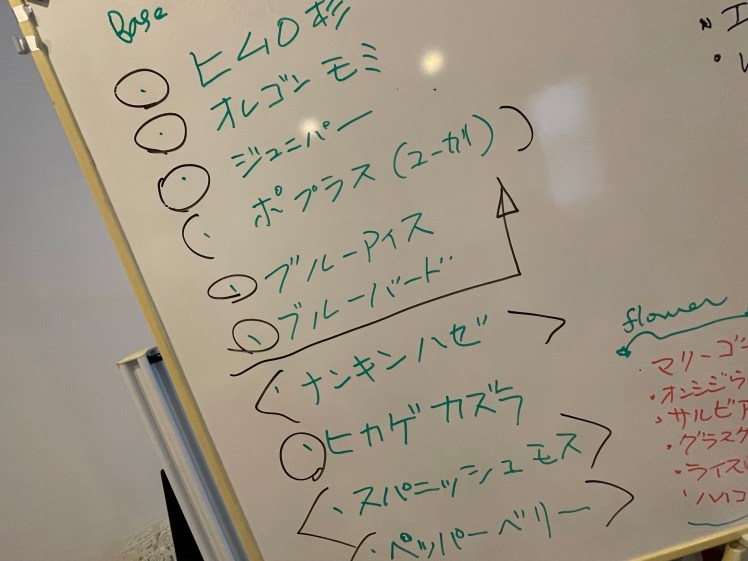 Base
・ヒムロ杉
・オレゴンモミ
・ジュニパー
(・ポプラス(ユーカリ))
・ブルーアイス
・ブルーバード
<・ナンキンハゼ>
・ヒカゲカズラ
<・スパニッシュモス>
<・ペッパーベリー>
flower
・マリーゴ
・オンシジ
・サルビア
・グラス
・ライス